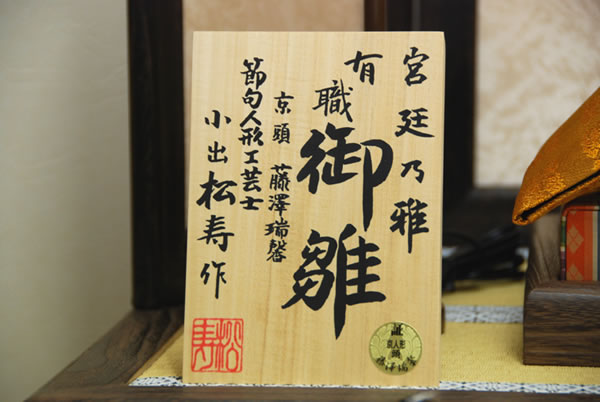 宮廷乃雅
有職御雛
京頭 藤澤瑞馨
節句人形工芸士
小出松寿作
松寿
証
京人形
頭